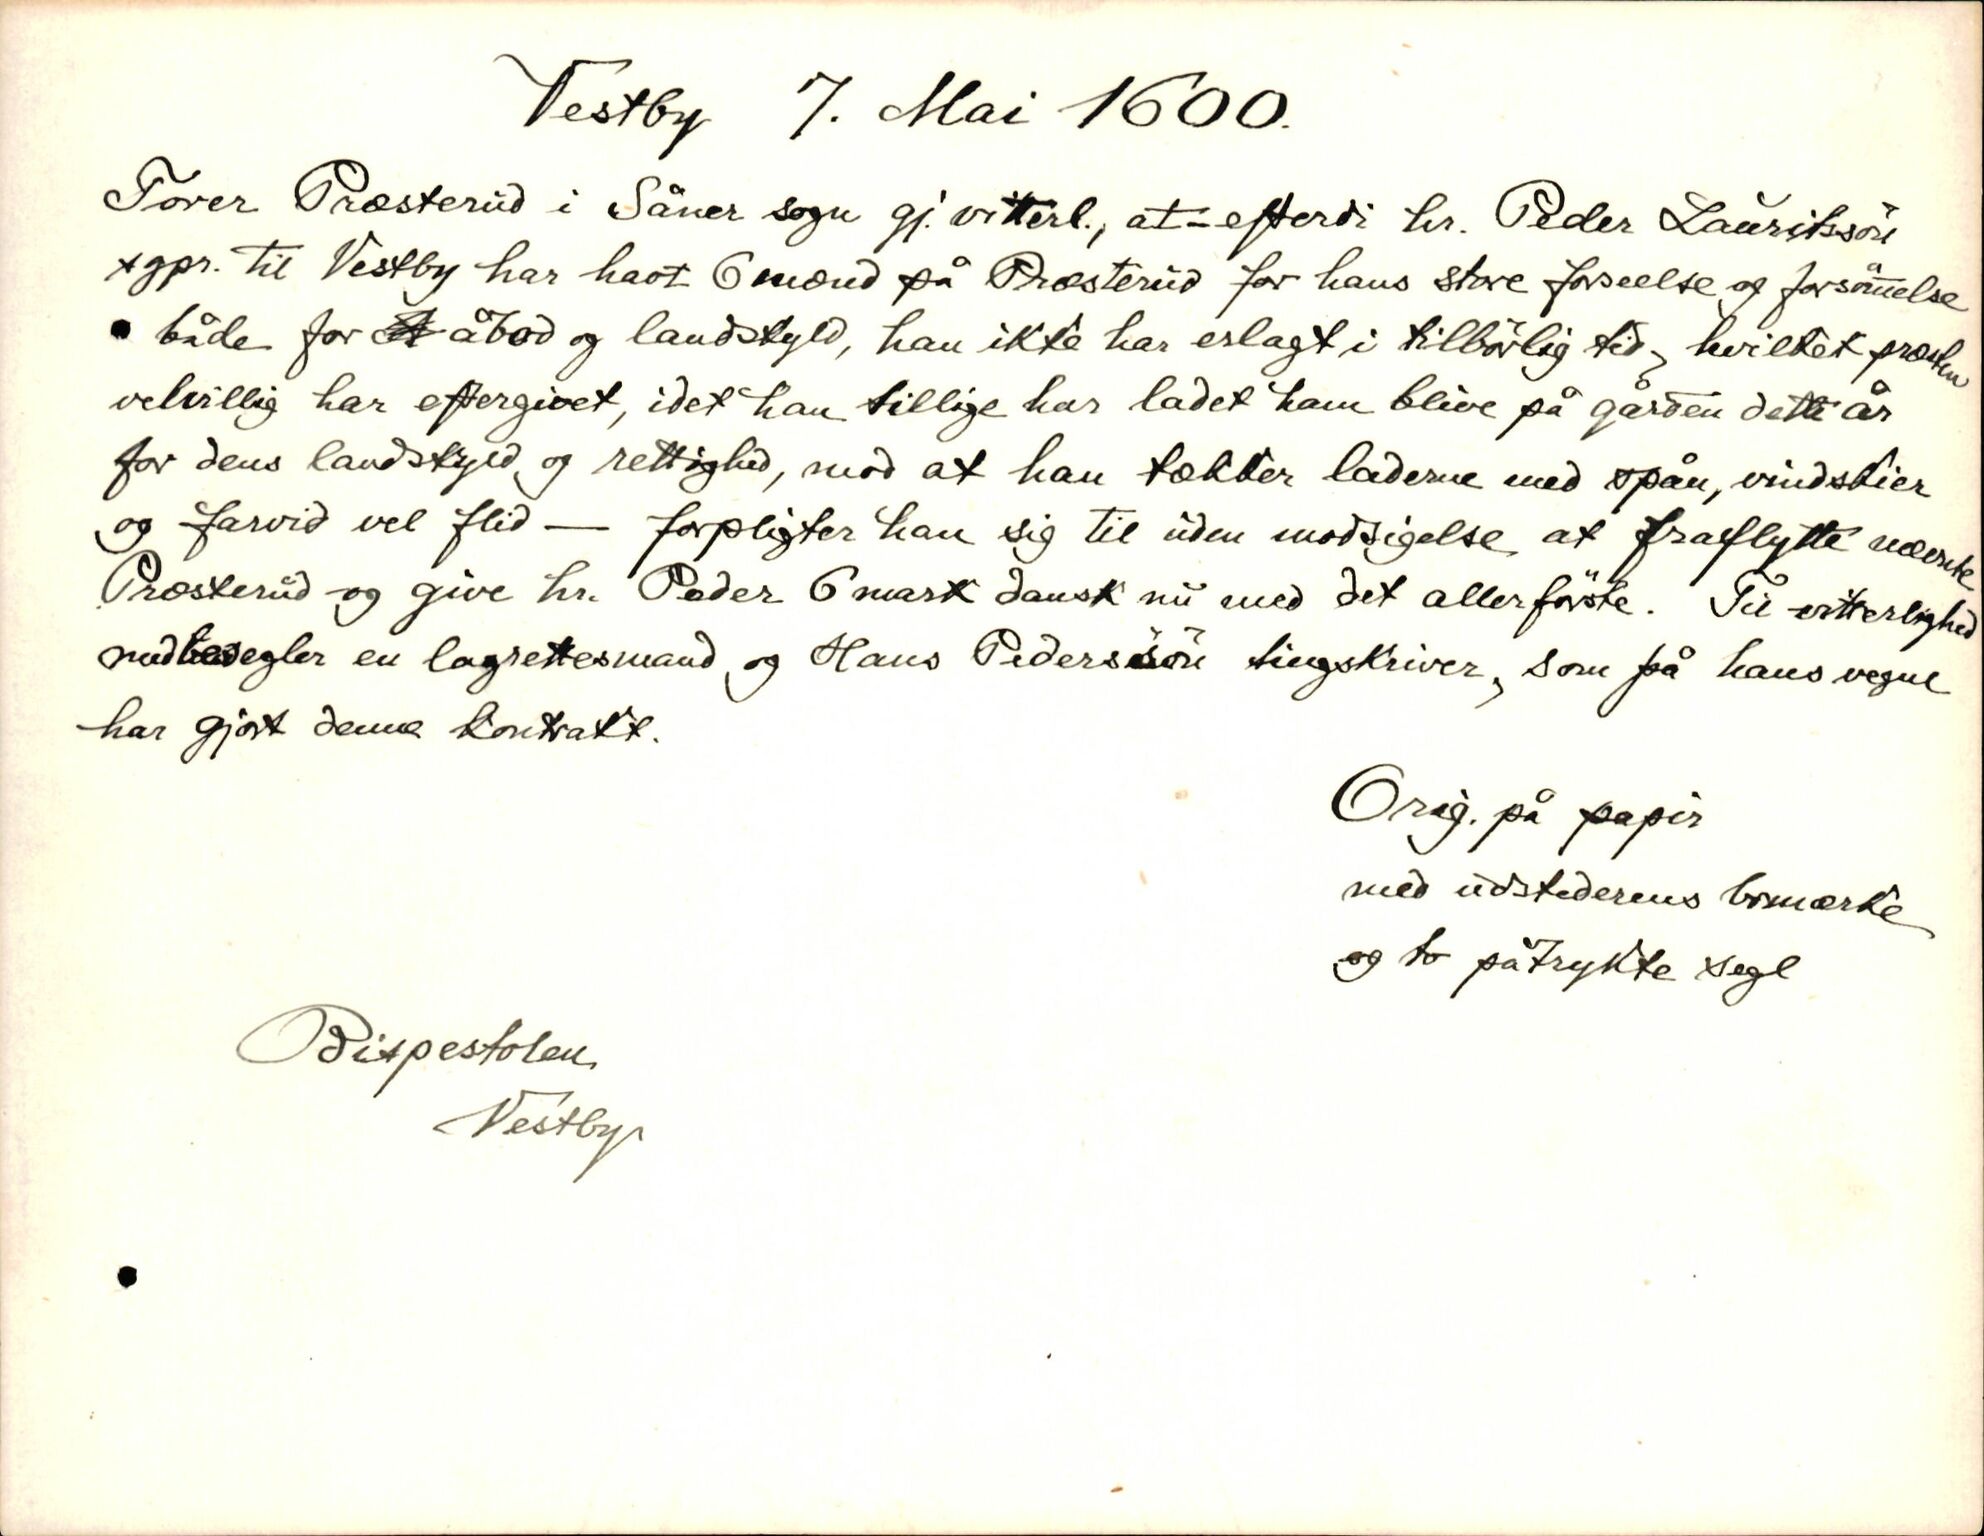 Vestby 7. Mai 1600.
Torer Præsterud i Såner sogn gj. vitterl., at - efterdi hr. Peder Lauritssön
sgpr. til Vestby har havt 6 mænd på Præsterud for hans store forseelse og forsömelse
både for åbod og landskyld, han ikke har erlagt i tilbörlig tid, hvilket præsten
velvillig har eftergivet, idet han tillige har ladet ham blive på gården dette år
for dens landskyld og rettighed, mod at han tækker laderne med spån, vindskier
og farvid vel flid — forpligter han sig til uden modsigelse at fraflytte nævnte
Præsterud og give hr. Peder 6 mark dansk nu med det allerförste. Til vitterlighed
medbesegler en lagrettesmand og Hans Pederssön tingskriver, som på hans vegne
har gjort denne kontrakt.
Orig. på papir
med udstederens bomærke
og to påtrykte segl
Bispestolen
Vestby